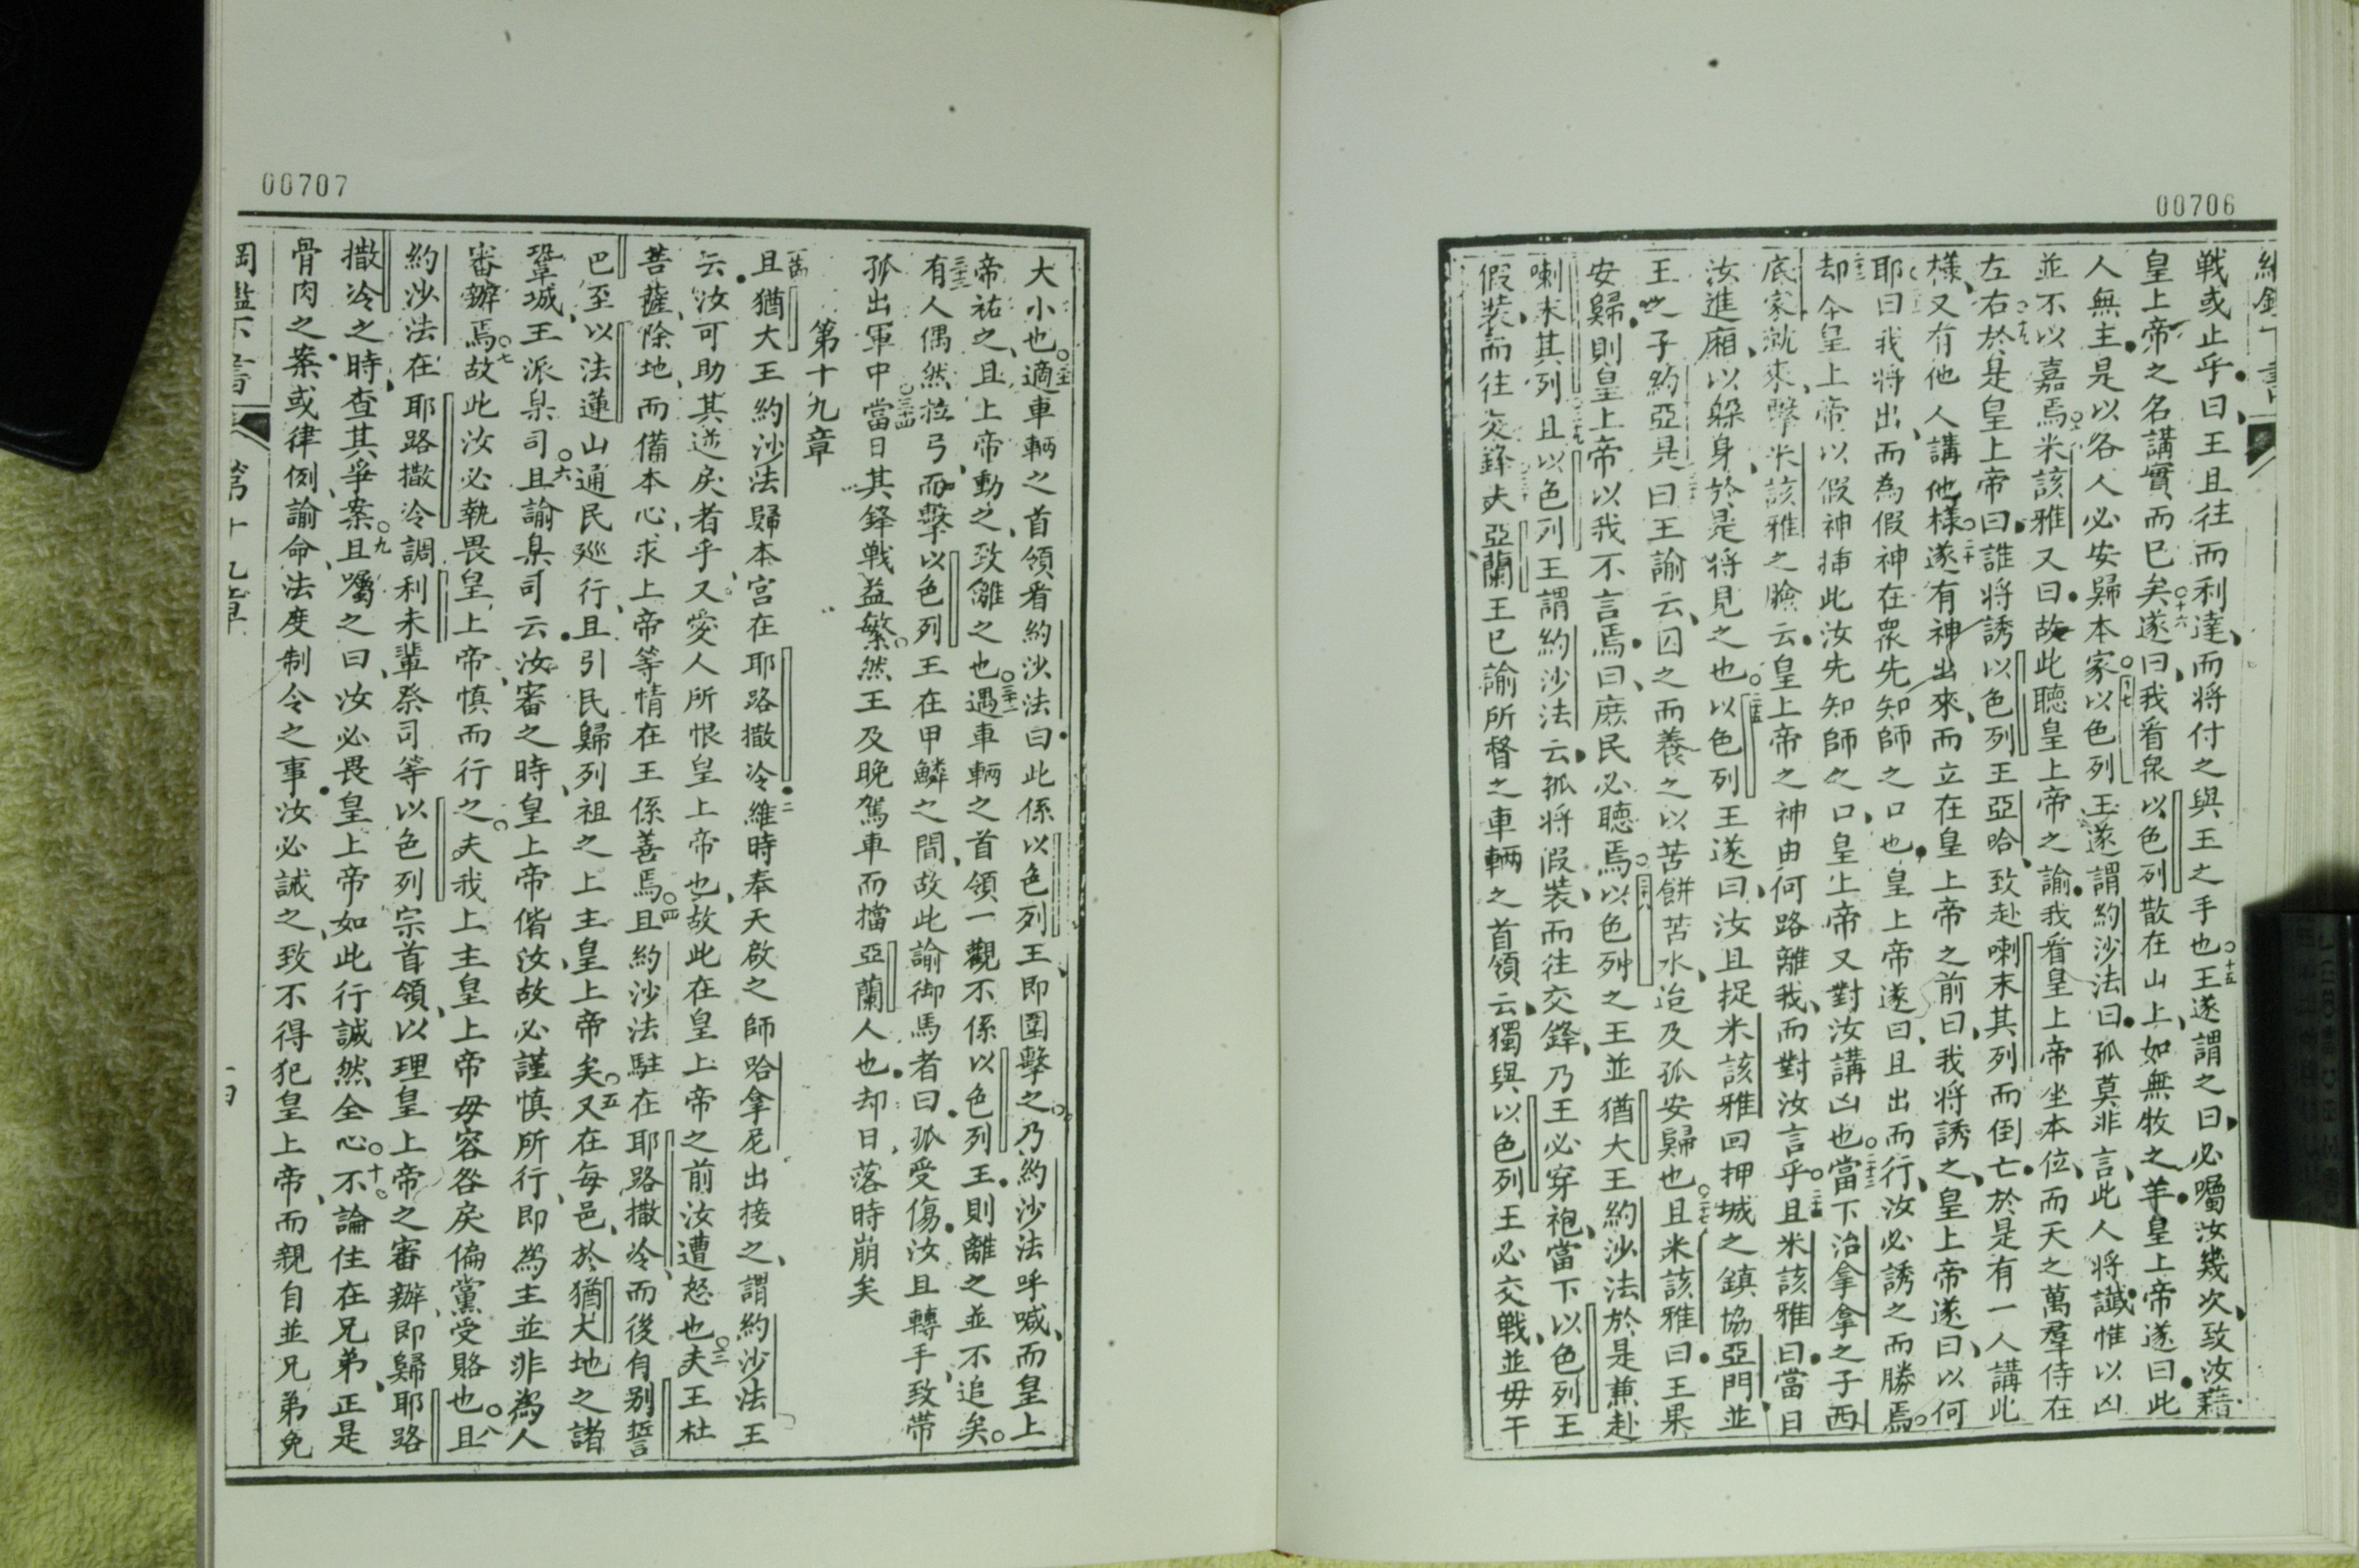 00706
戰或止乎曰王且往而利達而將付之與王之手也○十五王遂謂之曰必囑汝幾次致汝藉
皇上帝之名講實而已矣○十六遂曰我看衆以色列散在山上如無牧之羊皇上帝遂曰此
人無主是以各人必安歸本家○十七以色列王遂謂約沙法曰孤莫非言此人將讖惟以凶
並不以嘉焉米該雅又曰故此聽皇上帝之諭我看皇上帝坐本位而天之萬羣侍在
左右於是皇上帝曰誰將誘以色列王亞哈致赴喇末其列而倒亡於是有一人講此
樣又有他人講他樣○二十遂有神出來而立在皇上帝之前曰我將誘之皇上帝遂曰以何
耶曰我將出而為假神在眾先知師之口也皇上帝遂曰且出而行汝必誘之而勝焉○
却今皇上帝以假神揷此汝先知師之口皇上帝又對汝講凶也○二十三當下治拿拿之子西
底家就來擊米該雅之臉云皇上帝之神由何路離我而對汝言乎○二十四且米該雅曰當日
汝進廂以躲身於是將見之也○二十五以色列王遂曰汝且捉米該雅回押城之鎮協亞門並
王之子約亞是曰王諭云囚之而養之以苦餅苦水迨及孤安歸也○二十七且米該雅曰王果
安歸則皇上帝以我不言焉曰庶民必聽焉○二十八以色列之王並猶大王約沙法於是兼赴
喇末其列且以色列王謂約沙法云孤將假裝而往交鋒乃王必穿袍當下以色列王
假裝而往交鋒夫亞蘭王已諭所督之車輛之首領云獨與以色列王必交戰並毋干
00707
大小也○三十一適車輛之首領看約沙法曰此係以色列王即圍擊之乃約沙法呼喊而皇上
帝祐之且上帝動之致離之也○三十二遇車輛之首領一觀不係以色列王則離之並不追矣○
三十三有人偶然拉弓而擊以色列王在甲鱗之間故此諭御馬者曰孤受傷汝且轉手致帶
孤出軍中○三十四當日其鋒戰益繁然王及晚駕車而擋亞蘭人也却日落時崩矣
第十九章
且猶大王約沙法歸本宮在耶路撒冷二維時奉天啟之師哈拿尼出接之謂約沙法王
云汝可助其逆戾者乎又愛人所恨皇上帝也故此在皇上帝之前汝遭怒也○三夫王杜
菩薩除地而備本心求上帝等情在王係善焉○四且約沙法駐在耶路撒冷而後自别誓
巴至以法蓮山通民廵行且引民歸列祖之上主皇上帝矣○五又在每邑於猶大地之諸
鞏城王派臬司○六且諭臬司云汝審之時皇上帝偕汝故必謹慎所行即為主並非為人
審辦焉○七故此汝必執畏皇上帝慎而行之夫我上主皇上帝毋容咎戾偏黨受賂也○八且
約沙法在耶路撒冷調利未輩祭司等以色列宗首領以理皇上帝之審辦即歸耶路
撒冷之時查其爭案○九且囑之曰汝必畏皇上帝如此行誠然全心○十不論住在兄弟正是
骨肉之案或律例諭命法度制令之事汝必誡之致不得犯皇上帝而親自並兄弟免
第十九章